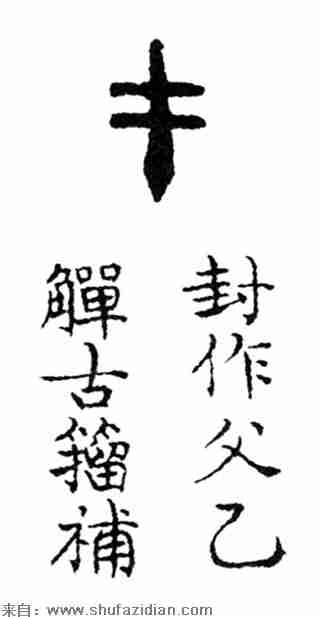 封作父乙
觶古籀補
来自：www.shufazidian.com